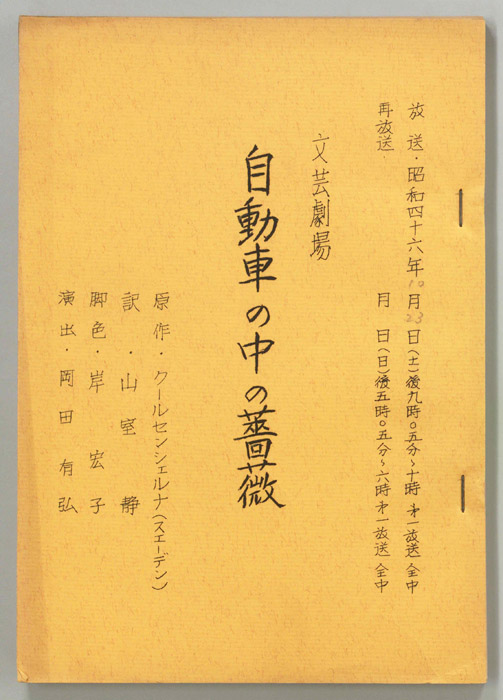 放送・昭和四十六年10月23日(土)後九時〇五分~十時 才一放送 全中
再放送 月 日(日)後五時〇五分~六時 才一放送 全中
文芸劇場
自動車の中の薔薇
原作・クールセンシェルナ(スエーデン)
訳・山室静
脚色・岸宏子
演出・岡田有弘